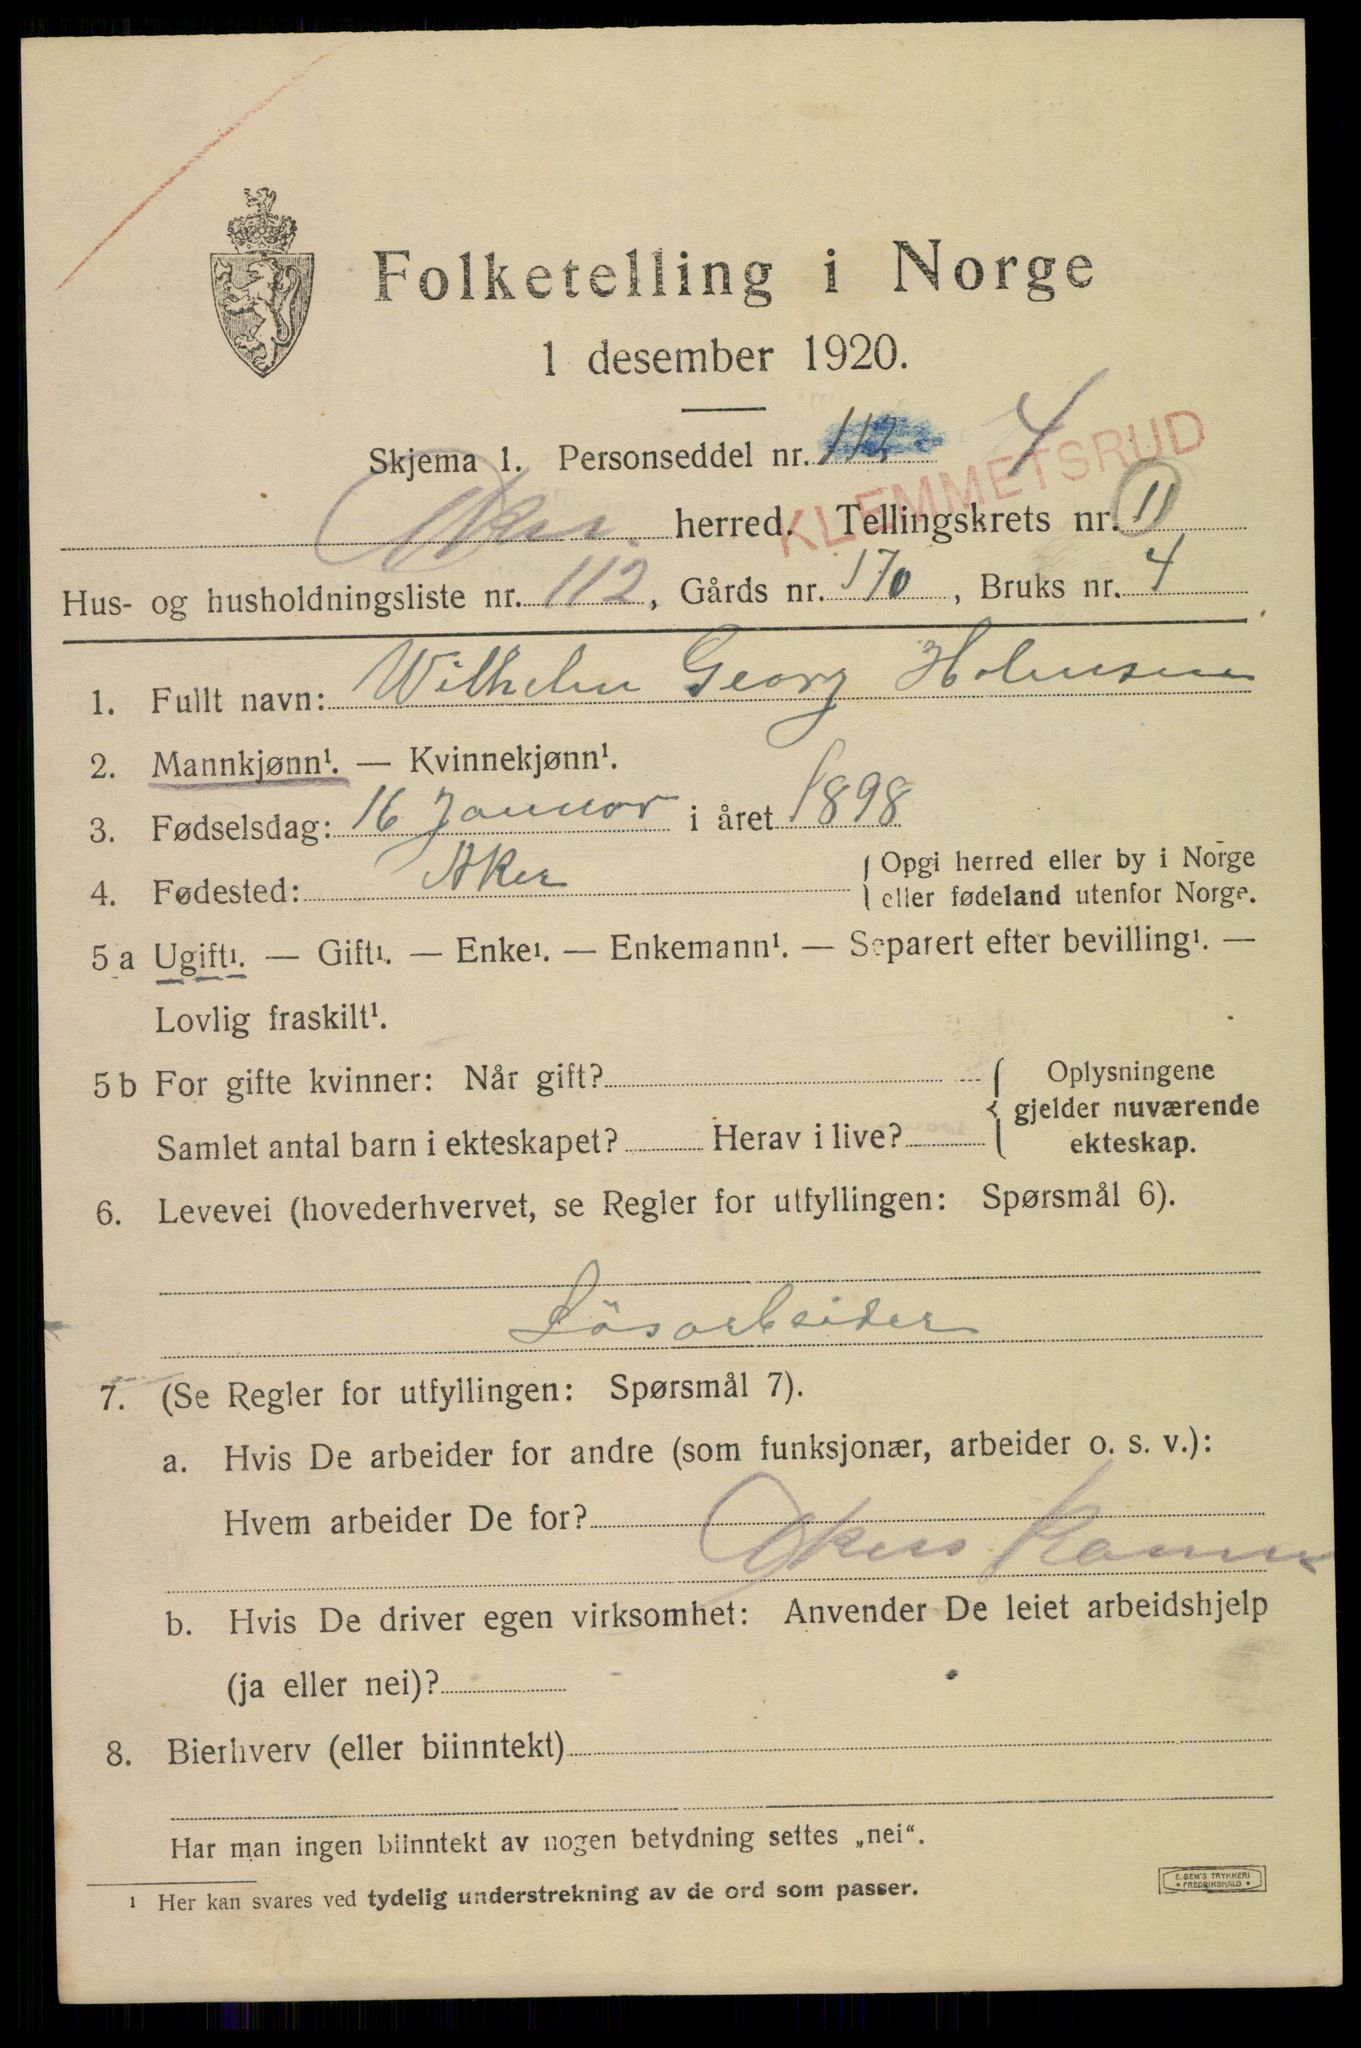 Folketelling i Norge
1 desember 1920.
Skjema 1. Personseddel nr. 112 4
KLEMMETSRUD
Aker herred. Tellingskrets nr. 11
Hus- og husholdningsliste nr. 112, Gårds nr. 170, Bruks nr. 4
1. Fullt navn: Wilhelm Georg Holmsen
2. Mannkjønn¹. — Kvinnekjønn¹.
3. Fødselsdag: 16 Januar i året 1898
4. Fødested: Aker { Opgi herred eller by i Norge
eller fødeland utenfor Norge.
5 a Ugift¹. — Gift¹. — Enke¹. — Enkemann¹. — Separert efter bevilling¹. —
Lovlig fraskilt¹.
5 b For gifte kvinner: Når gift?
Samlet antal barn i ekteskapet? Herav i live?
{ Oplysningene
gjelder nuværende
ekteskap.
6. Levevei (hovederhvervet, se Regler for utfyllingen: Spørsmål 6).
Lösarbeider
7. (Se Regler for utfyllingen: Spørsmål 7).
a. Hvis De arbeider for andre (som funksjonær, arbeider o. s. v.):
Hvem arbeider De for? Akers
b. Hvis De driver egen virksomhet: Anvender De leiet arbeidshjelp
(ja eller nei)?
8. Bierhverv (eller biinntekt)
Har man ingen biinntekt av nogen betydning settes „nei“.
¹ Her kan svares ved tydelig understrekning av de ord som passer.
E. SEM'S TRYKKERI
* FREDRIKSHALD *